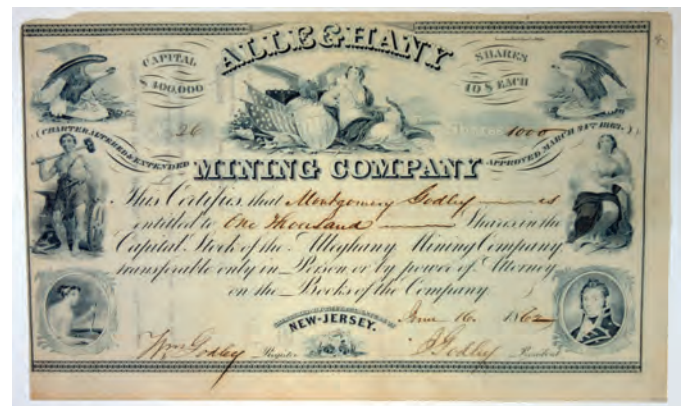 ALLEGHANY
CAPITAL
$400,000
SHARES
10 $ EACH
26
Shares 1000
(CHARTER ALTERED & EXTENDED
APPROVED MARCH 21st 1862.)
MINING COMPANY
This Certifies that Montgomery Godley is
entitled to One Thousand Shares in the
Capital Stock of the Alleghany Mining Company
transferable only in Person or by power of Attorney
on the Books of the Company
NEW-JERSEY.
June 16. 1862
Wm Godley Register
J Godley President